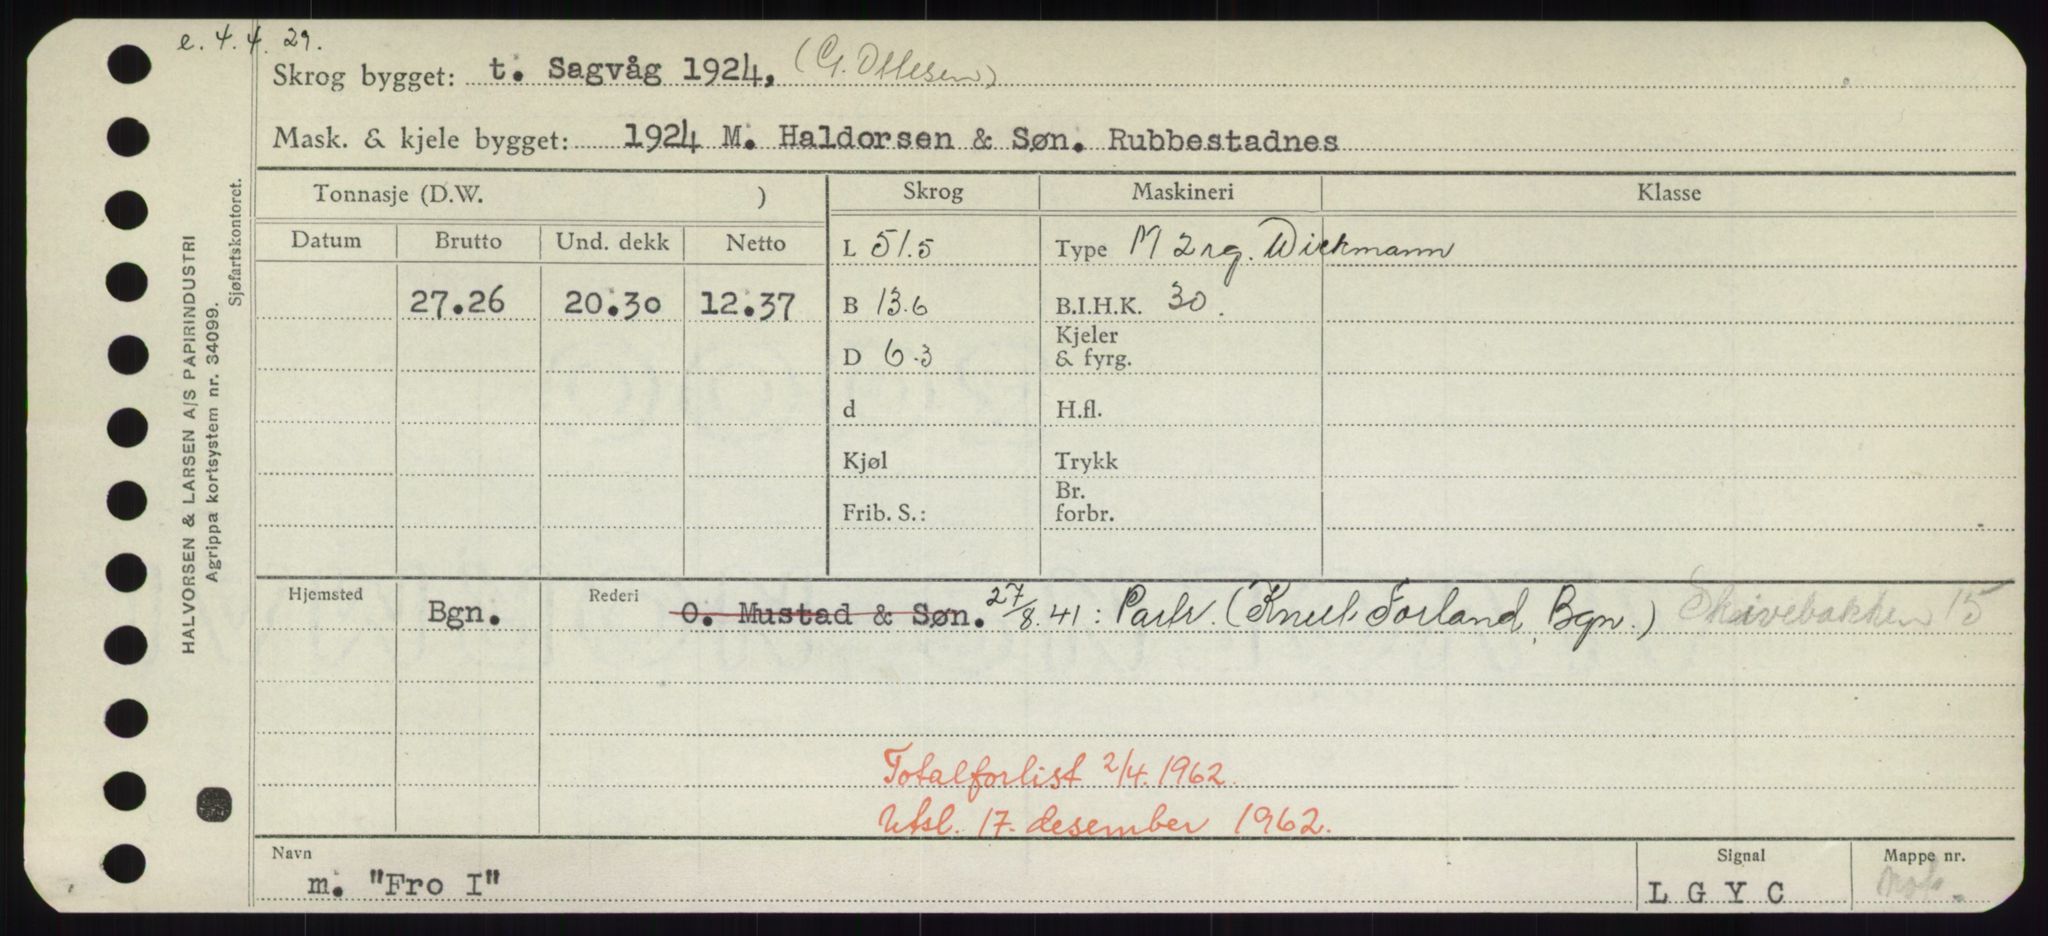 e. 4.4.29.
Skrog bygget: t. Sagvåg 1924, (G. Ottesen)
Mask. & kjele bygget: 1924 M. Haldorsen & Søn. Rubbestadnes
Tonnasje (D.W. ) Skrog Maskineri Klasse
Datum Brutto Und. dekk Netto
L 51.5 Type M 2 rg. Wickmann
27.26 20.30 12.37 B 13.6 B.I.H.K. 30.
D 6.3 Kjeler & fyrg.
d H.fl.
Kjøl Trykk
Frib. S.: Br. forbr.
Hjemsted Bgn. Rederi O. Mustad & Søn. 27/8.41: Partr. (Knut Forland, Bgn.) Skivebakken 15
Totalforlist 2/4.1962.
Utsl. 17. desember 1962.
Navn Signal Mappe nr.
m. "Fro I" L G Y C
HALVORSEN & LARSEN A/S PAPIRINDUSTRI
Agrippa kortsystem nr. 34099.
Sjøfartskontoret.